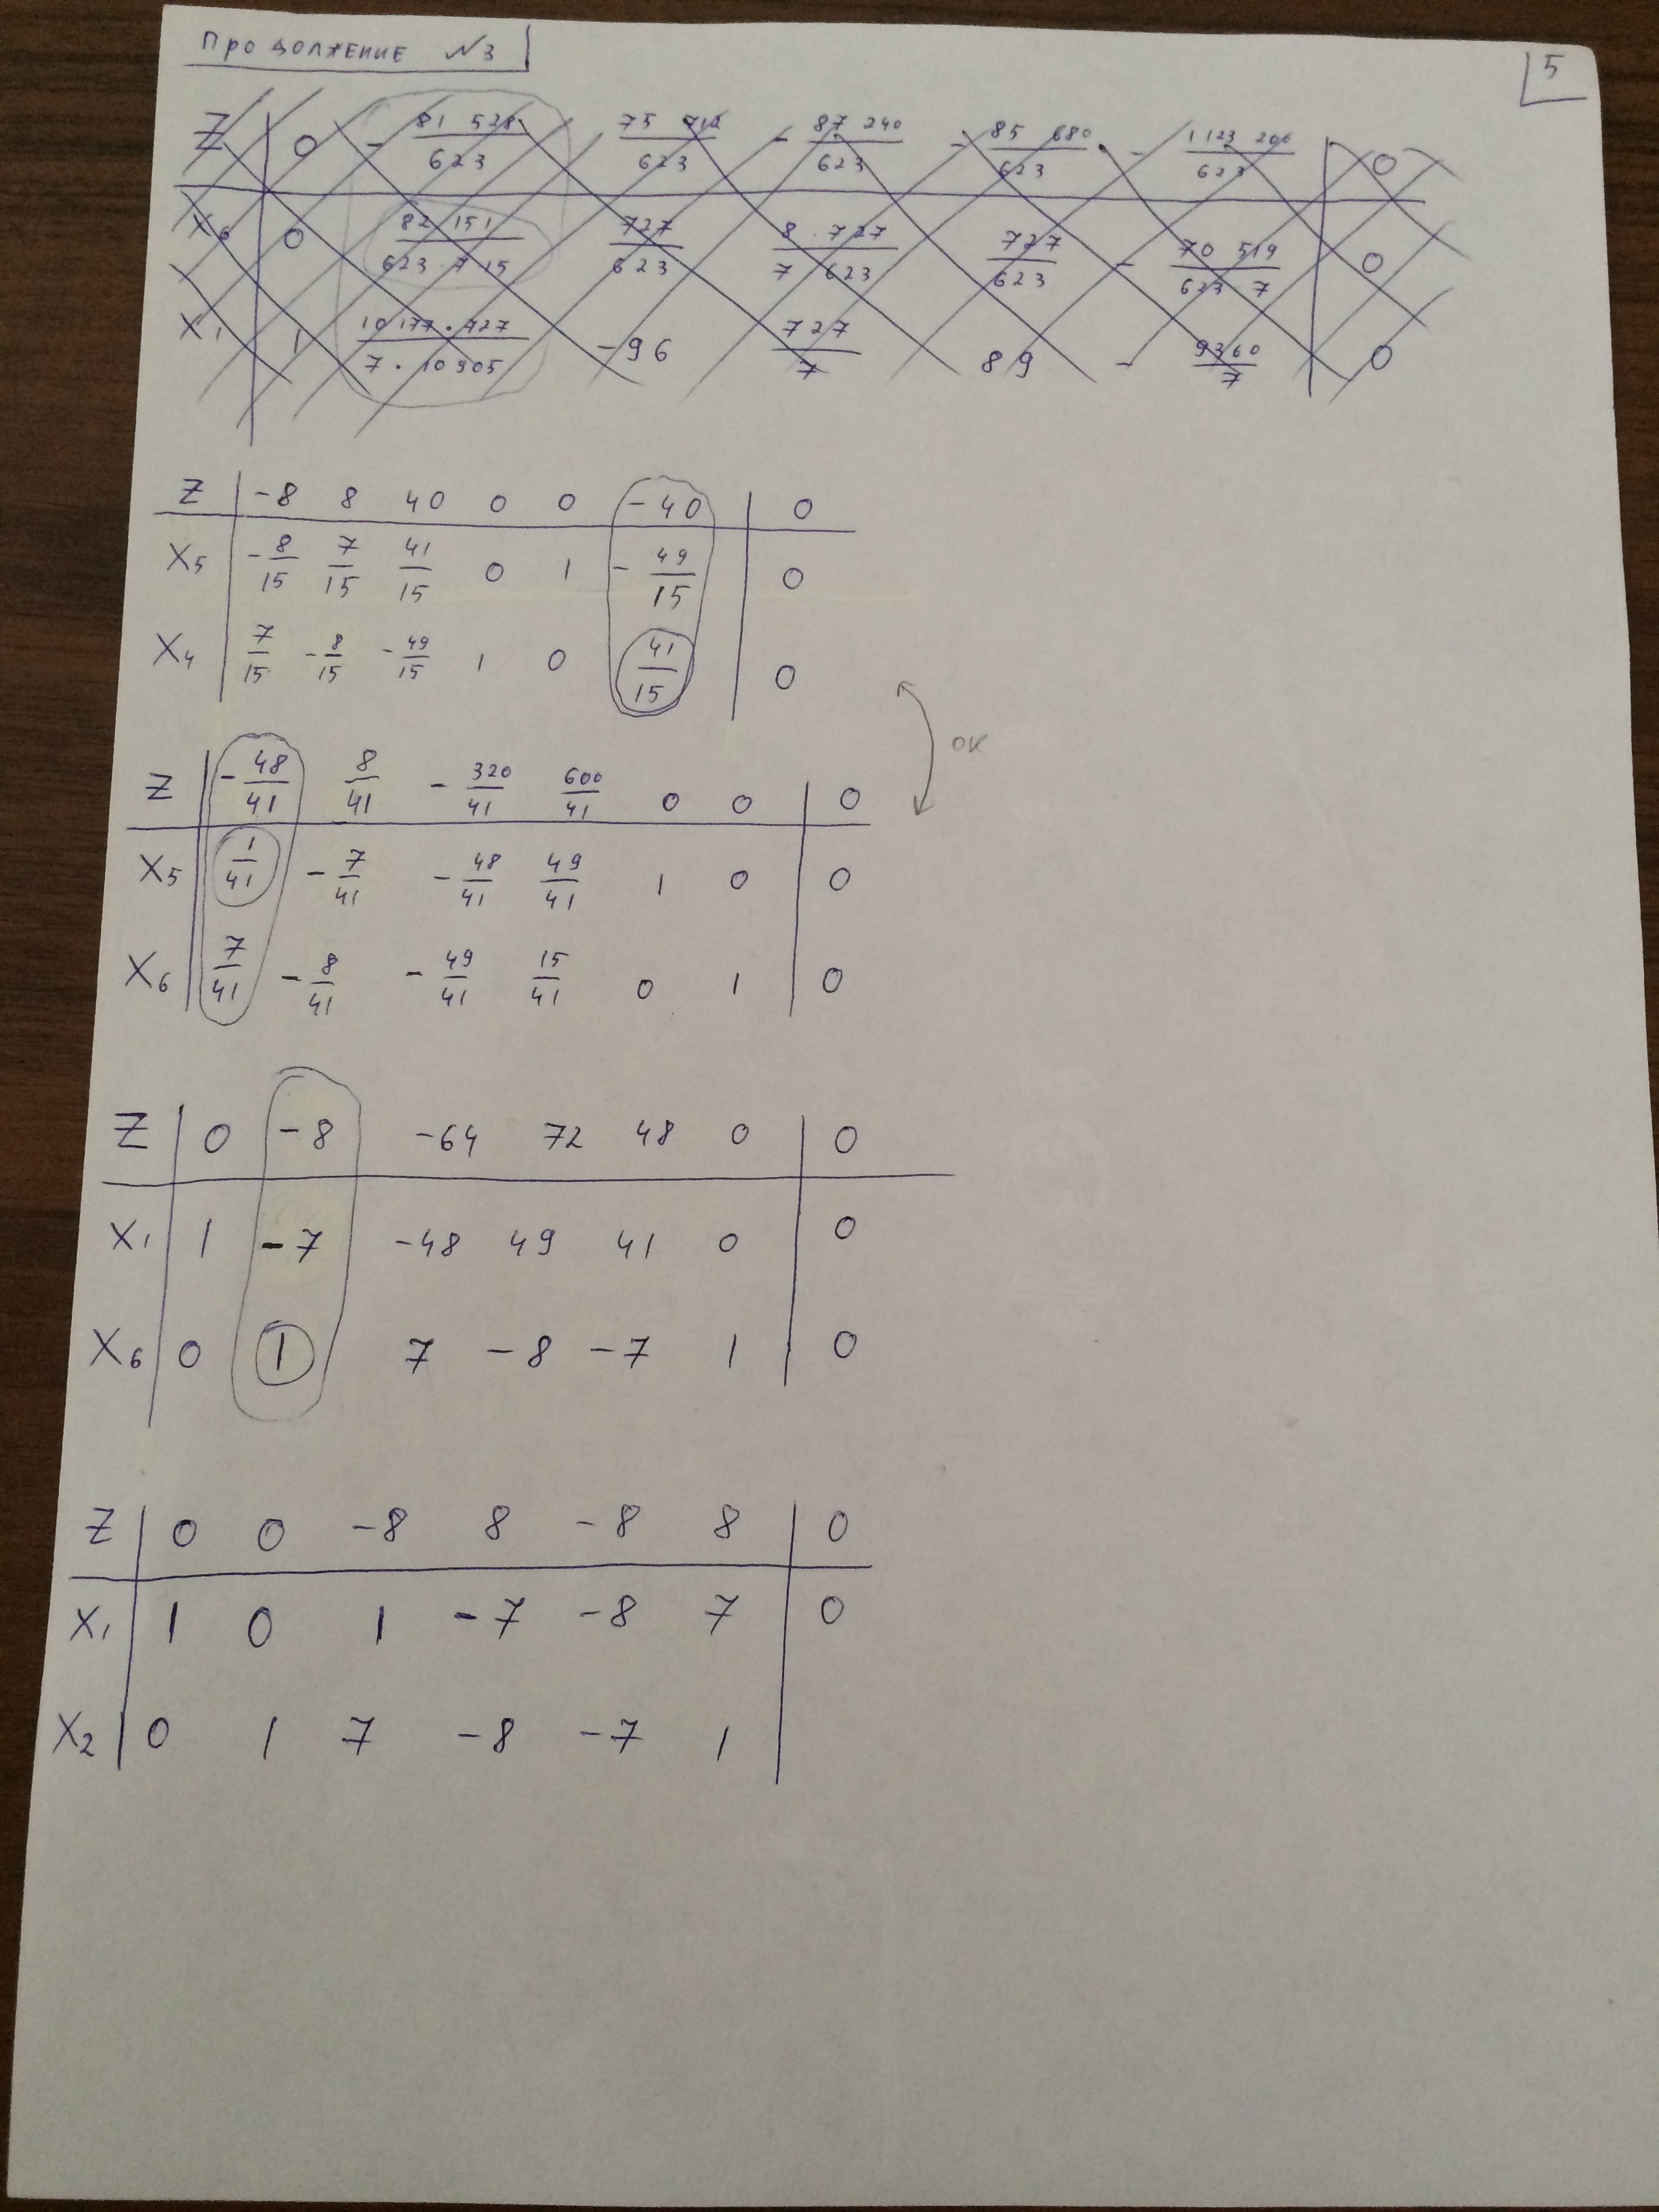 Продолжение №3
5
Z | 0 - 81 528/623 75 712/623 - 87 240/623 - 85 680/623 - 1 123 206/623 | 0
X₆ | 0 82 151/623·715 727/623 8·727/7 623 727/623 - 70 519/623 7 | 0
X₁ | 1 10 177·727/7·10 905 -96 727/7 89 - 9360/7 | 0
Z | -8 8 40 0 0 -40 | 0
X₅ | -8/15 7/15 41/15 0 1 -49/15 | 0
X₄ | 7/15 -8/15 -49/15 1 0 41/15 | 0
OK
Z | -48/41 8/41 -320/41 600/41 0 0 | 0
X₅ | 1/41 -7/41 -48/41 49/41 1 0 | 0
X₆ | 7/41 -8/41 -49/41 15/41 0 1 | 0
Z | 0 -8 -64 72 48 0 | 0
X₁ | 1 -7 -48 49 41 0 | 0
X₆ | 0 1 7 -8 -7 1 | 0
Z | 0 0 -8 8 -8 8 | 0
X₁ | 1 0 1 -7 -8 7 | 0
X₂ | 0 1 7 -8 -7 1 |